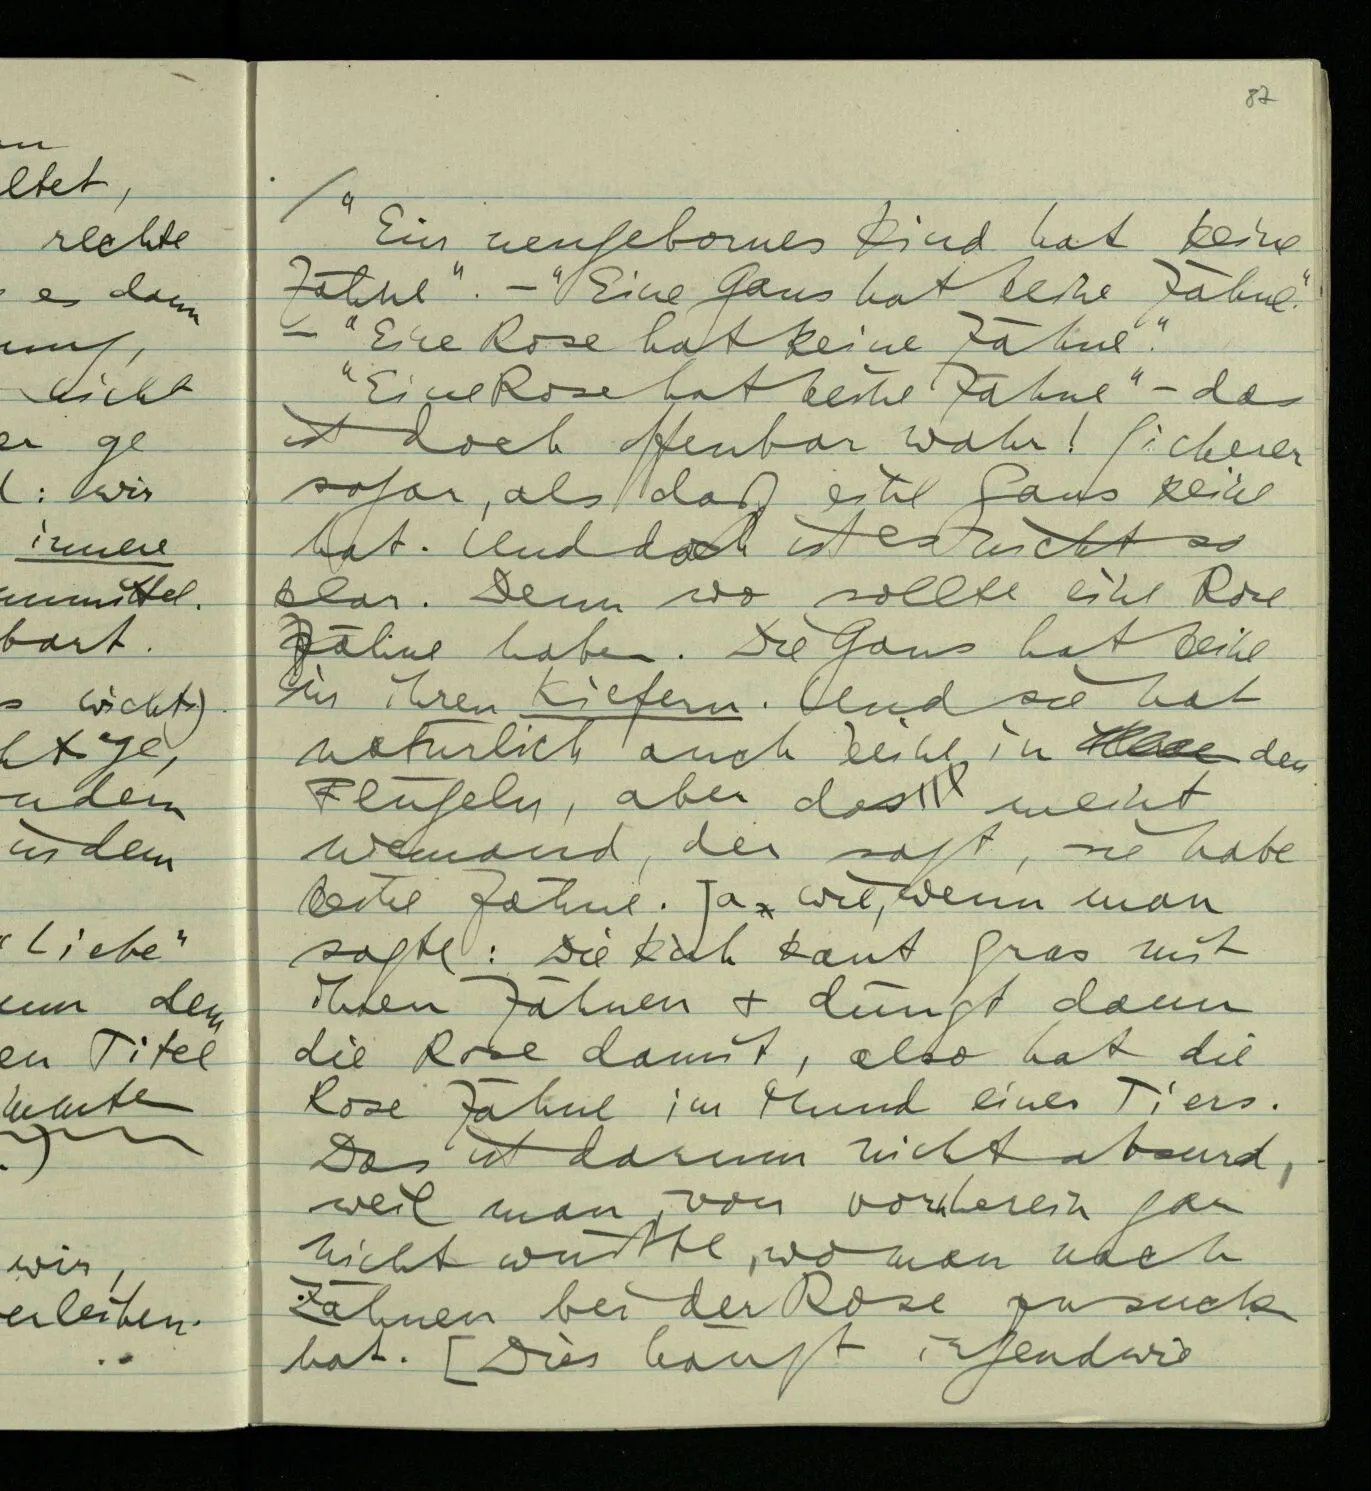 87
ltet,
rechte
es dann
nicht
er ge
: wir
innere
unmittel.
bart.
s wicht)
ndern
indem
"Liebe"
dem
en Titel
.)
wir,
verleihen.
/ "Ein neugebornes Kind hat keine
Zähne". – "Eine Gans hat keine Zähne."
– "Eine Rose hat keine Zähne".
"Eine Rose hat keine Zähne" – das
ist doch offenbar wahr! Sicherer
sogar, als daß eine Gans keine
hat. Und doch ist es nicht so
klar. Denn wo sollte eine Rose
Zähne haben. Die Gans hat keine
in ihren Kiefern. Und sie hat
natürlich auch keine in den
Flügeln, aber das meint
niemand, der sagt, sie habe
keine Zähne. Ja, wie, wenn man
sagte: Die Kuh kaut Gras mit
ihren Zähnen + düngt dann
die Rose damit, also hat die
Rose Zähne im Mund eines Tiers.
Das ist darum nicht absurd,
weil man von vornherein gar
nicht wüßte, wo man nach
Zähnen bei der Rose zu suchen
hat. [Dies hängt irgendwie